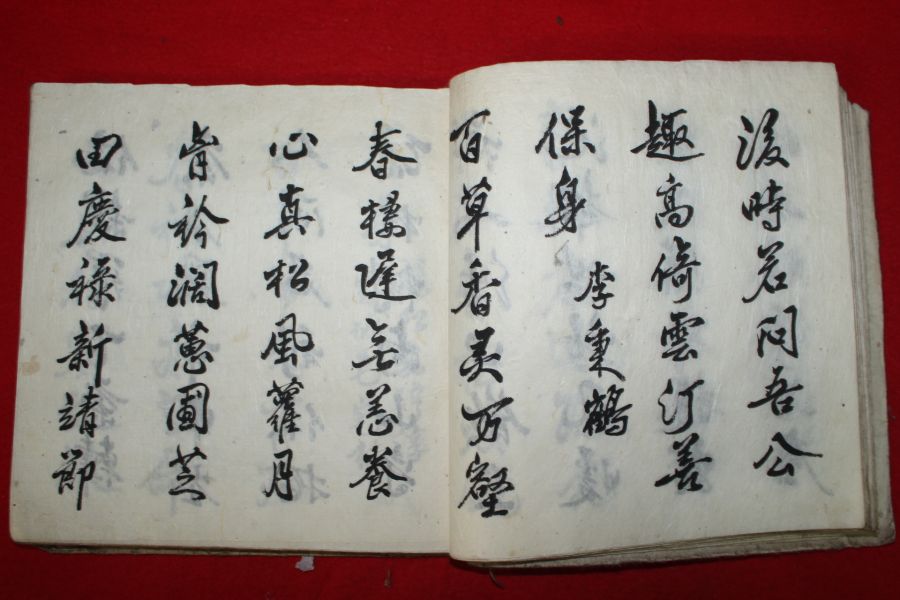 後時若問吾公
趣高倚雲汀善
保身
李秉鶴
百草香灵万壑
春樓遅無恙養
心真松風蘿月
肯衿濶蕙圃芝
田慶祿新靖節